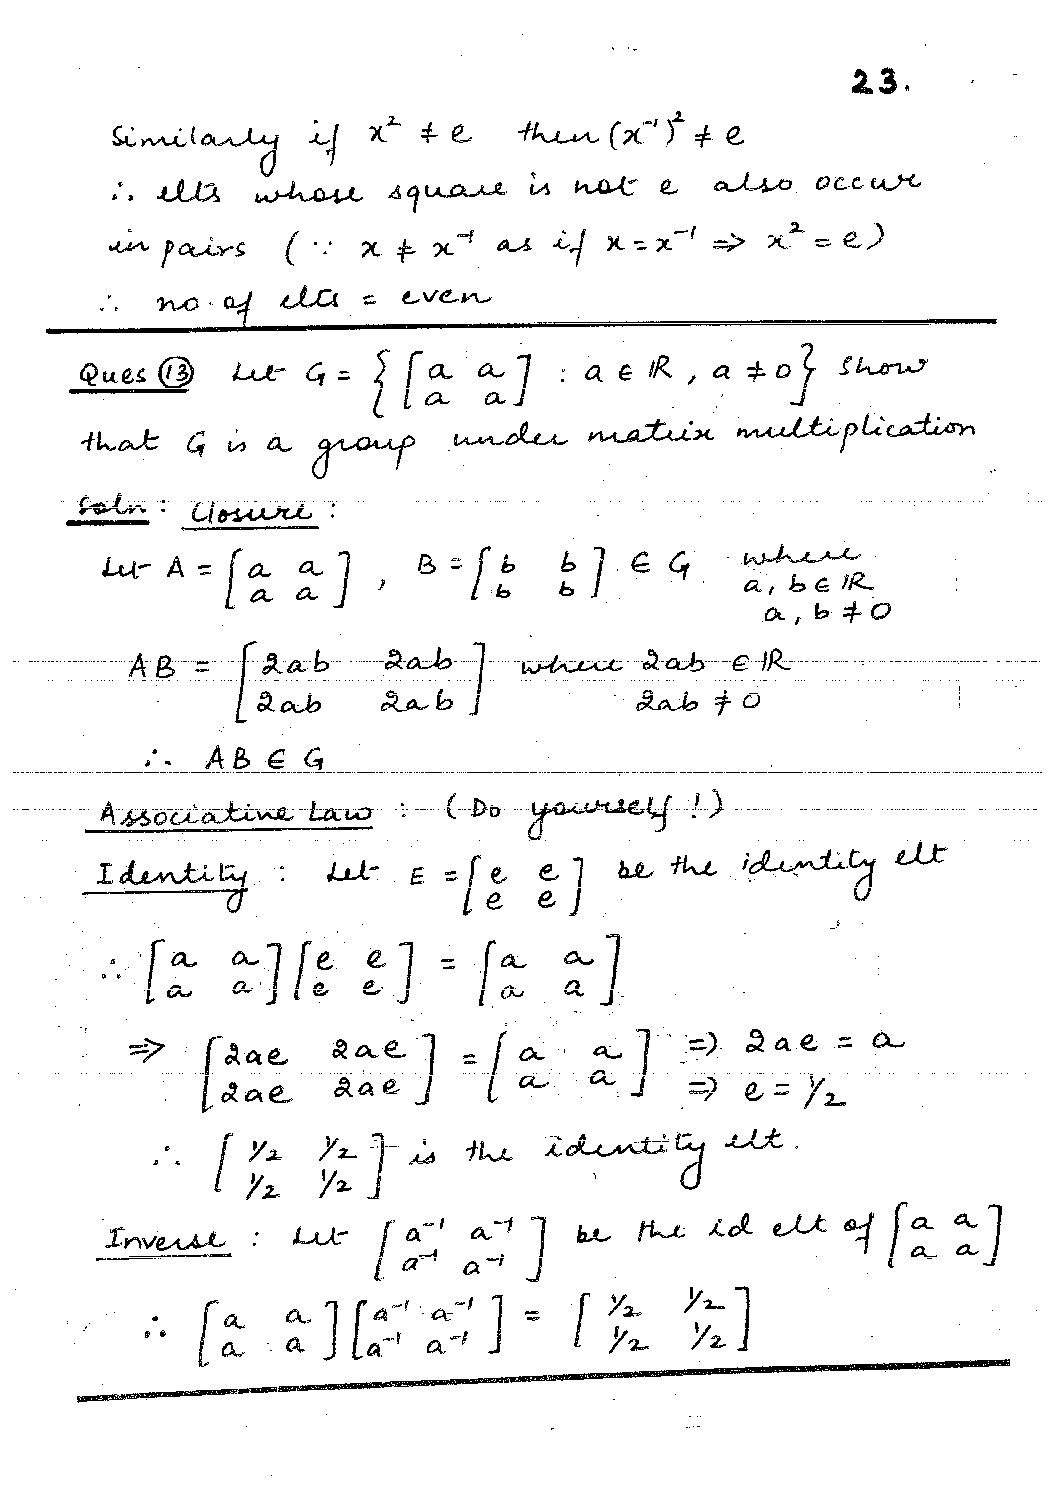 23.
Similarly if x² ≠ e then (x⁻¹)² ≠ e
∴ elts whose square is not e also occur
in pairs (∵ x ≠ x⁻¹ as if x = x⁻¹ ⇒ x² = e)
∴ no. of elts = even
Ques 13 Let G = { [a a; a a] : a ∈ ℝ, a ≠ 0 } Show
that G is a group under matrix multiplication
Soln : Closure :
Let A = [a a; a a], B = [b b; b b] ∈ G where a, b ∈ ℝ a, b ≠ 0
AB = [2ab 2ab; 2ab 2ab] where 2ab ∈ ℝ 2ab ≠ 0
∴ AB ∈ G
Associative Law : (Do yourself !)
Identity : Let E = [e e; e e] be the identity elt
∴ [a a; a a] [e e; e e] = [a a; a a]
⇒ [2ae 2ae; 2ae 2ae] = [a a; a a] ⇒ 2ae = a ⇒ e = 1/2
∴ [1/2 1/2; 1/2 1/2] is the identity elt.
Inverse : Let [a⁻¹ a⁻¹; a⁻¹ a⁻¹] be the id elt of [a a; a a]
∴ [a a; a a] [a⁻¹ a⁻¹; a⁻¹ a⁻¹] = [1/2 1/2; 1/2 1/2]